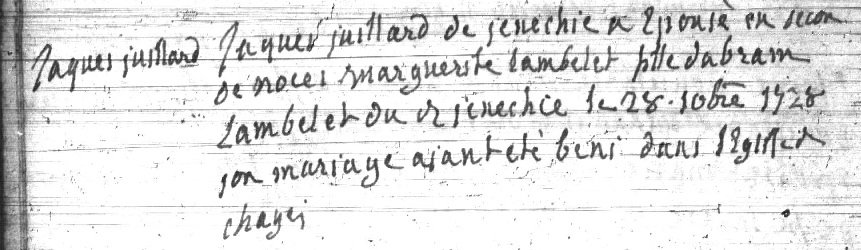 Jaques juillard Jaques juillard de senechie a Epousé en secon
de noces marguerite Lambelet fille dabram
Lambelet du d senechie le 28. 10bre 1728
son mariage aiant eté beni dans l'Eglise d
chayei